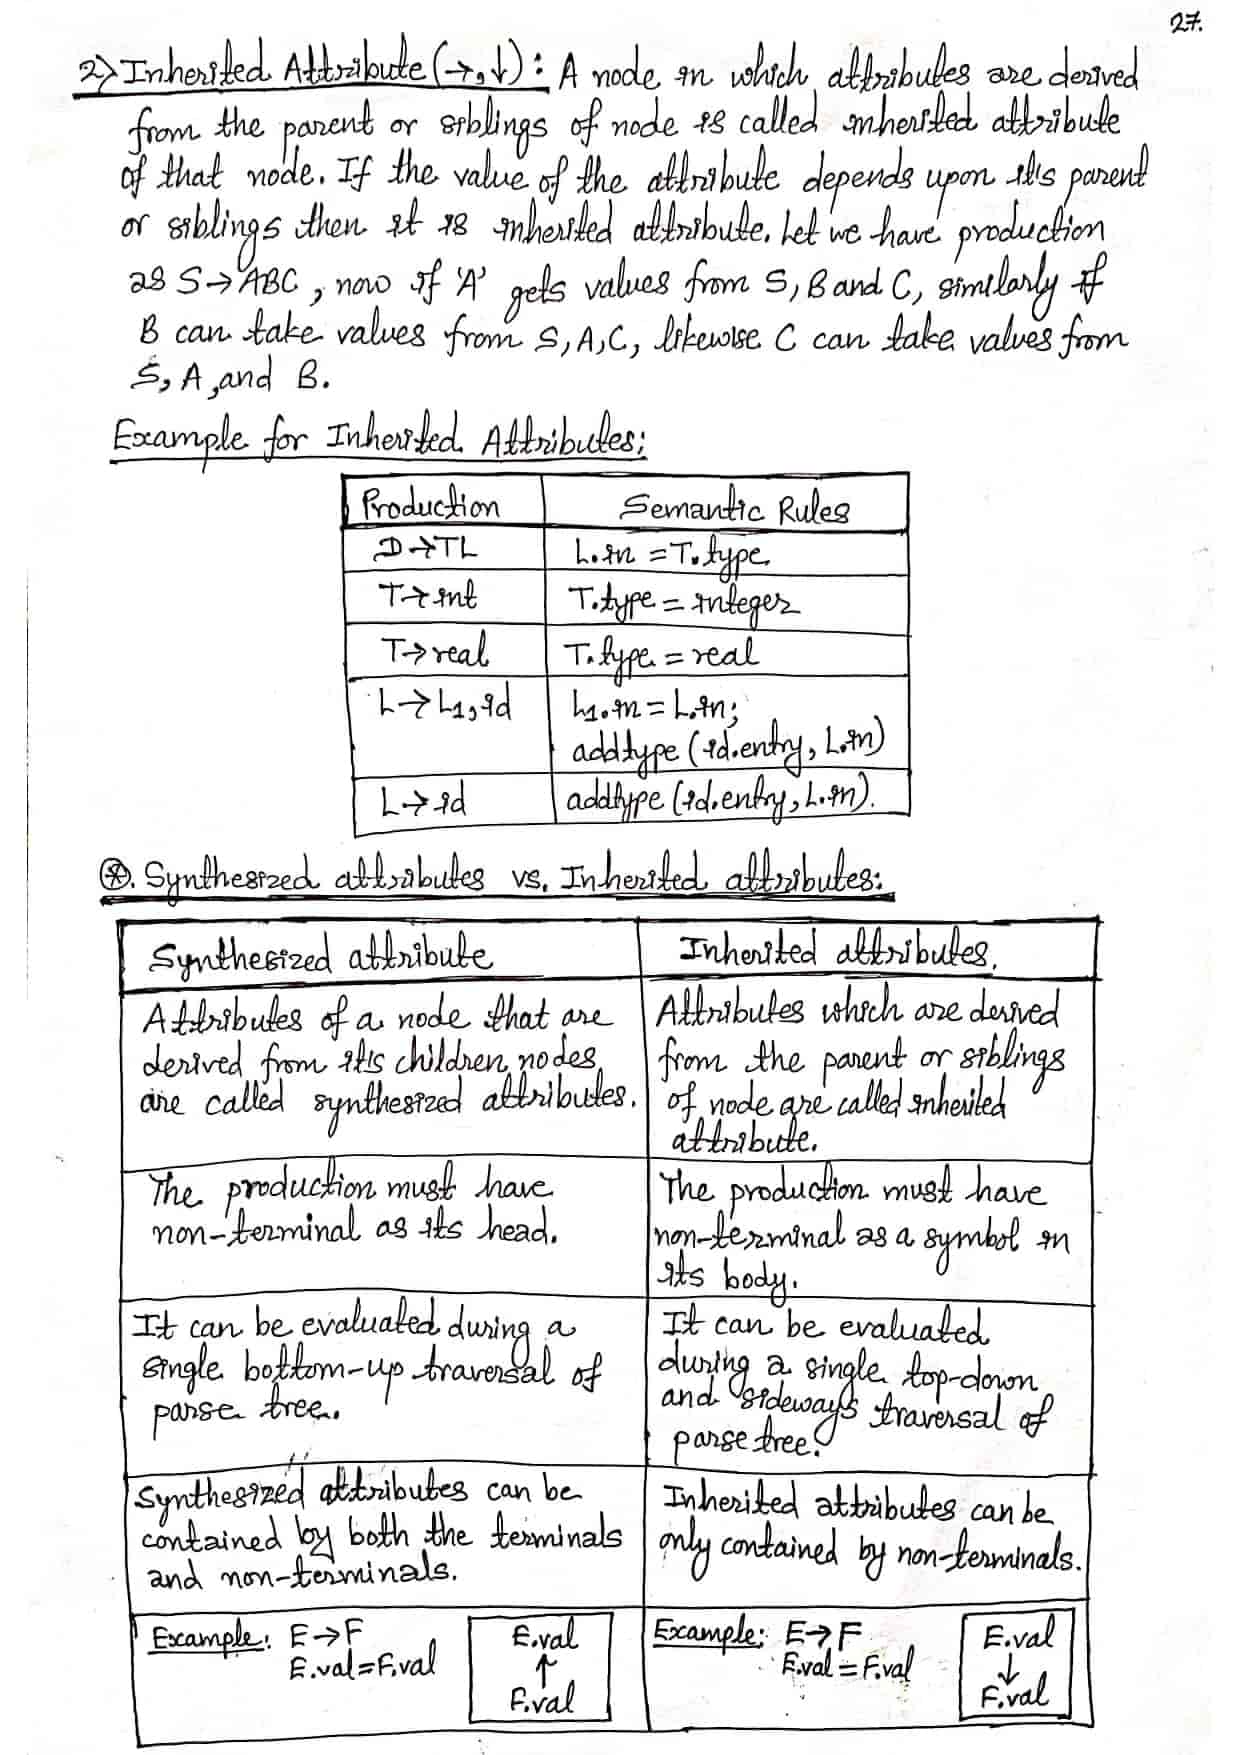 27.
2) Inherited Attribute (→,↓): A node in which attributes are derived
from the parent or siblings of node is called inherited attribute
of that node. If the value of the attribute depends upon it's parent
or siblings then it is inherited attribute. Let we have production
as S→ABC, now if 'A' gets values from S, B and C, similarly if
B can take values from S, A, C, likewise C can take values from
S, A, and B.
Example for Inherited Attributes:
Production Semantic Rules
D→TL L.in = T.type
T→int T.type = integer
T→real T.type = real
L→L1,id L1.in = L.in;
addtype (id.entry, L.in)
L→id addtype (id.entry, L.in).
⊛. Synthesized attributes vs. Inherited attributes:
Synthesized attribute
Attributes of a node that are
derived from it's children nodes
are called synthesized attributes.
Inherited attributes.
Attributes which are derived
from the parent or siblings
of node are called inherited
attribute.
The production must have
non-terminal as its head.
The production must have
non-terminal as a symbol in
its body.
It can be evaluated during a
single bottom-up traversal of
parse tree.
It can be evaluated
during a single top-down
and sideways traversal of
parse tree.
Synthesized attributes can be
contained by both the terminals
and non-terminals.
Inherited attributes can be
only contained by non-terminals.
Example: E→F
E.val=F.val
E.val
↑
F.val
Example: E→F
E.val = F.val
E.val
↓
F.val